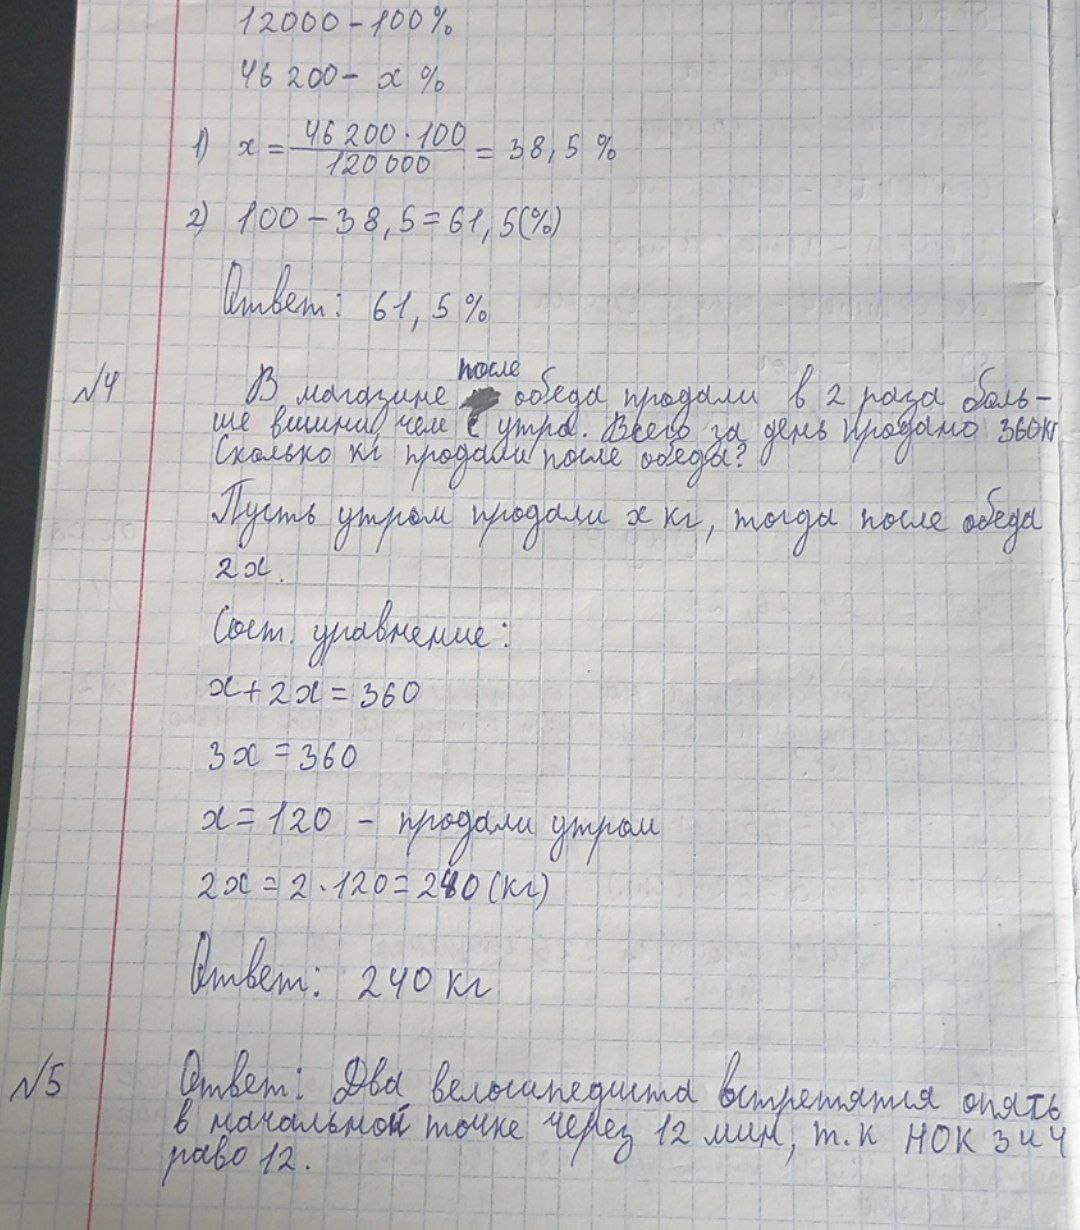 12000 - 100%
46 200 - x %
1) x = 46 200 · 100 / 120 000 = 38,5 %
2) 100 - 38,5 = 61,5(%)
Ответ: 61,5 %
после
№4 В магазине обеда продали в 2 раза боль-
ше вишни, чем с утра. Всего за день продано 360кг
Сколько кг продали после обеда?
Пусть утром продали x кг, тогда после обеда
2x.
Сост. уравнение:
x + 2x = 360
3x = 360
x = 120 - продали утром
2x = 2 · 120 = 240 (кг)
Ответ: 240 кг
№5 Ответ: Два велосипедиста встретятся опять
в начальной точке через 12 мин, т.к НОК 3 и 4
раво 12.